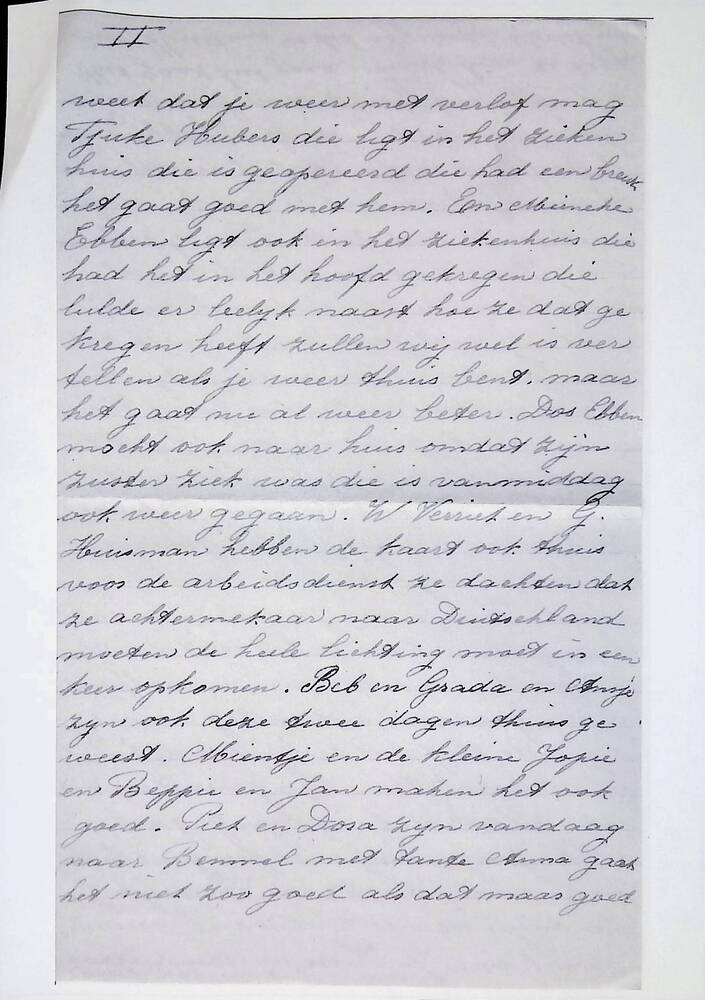 II
weet dat je weer met verlof mag
Tjuke Hubers die ligt in het zieken
huis die is geopereerd die had een breuk
het gaat goed met hem. En Mieneke
Ebben ligt ook in het ziekenhuis die
had het in het hoofd gekregen die
lulde er leelyk naast hoe ze dat ge
kregen heeft zullen wij wel is ver
tellen als je weer thuis bent. maar
het gaat nu al weer beter. Dos Ebben
mocht ook naar huis omdat zijn
zuster ziek was die is vanmiddag
ook weer gegaan. W Verriet en G.
Huisman hebben de kaart ook thuis
voor de arbeidsdienst ze dachten dat
ze achtermekaar naar Duitschland
moeten de heele lichting moet in een
keer opkomen. Beb en Grada en Annje
zyn ook deze twee dagen thuis ge
weest. Mientje en de kleine Jopie
en Beppie en Jan maken het ook
goed. Piet en Dora zyn vandaag
naar Bemmel met tante Anna gaat
het niet zoo goed als dat maar goed